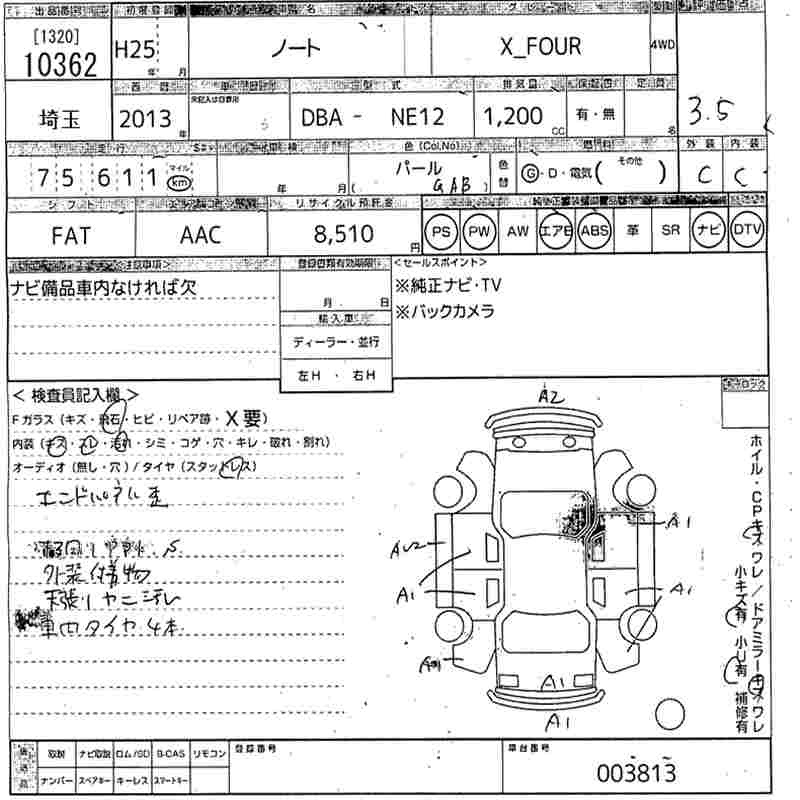 出品番号 初度登録 車名 グレード 評価点
[1320]
10362
H25 年 月
ノート
X_FOUR
4WD
3.5
埼玉
2013 年
型式
DBA - NE12
排気量
1,200 cc
有・無
定員
名
走行
75611
マイル
km
年 月
色(Col.No)
パール
GAB
色替
燃料
G・D・電気( その他 )
外装 内装
C C
シフト エアコン リサイクル預託金
FAT
AAC
8,510 円
PS PW AW エアB ABS 革 SR ナビ DTV
注意事項
ナビ備品車内なければ欠
登録書類有効期限
月 日
輸入車
ディーラー・並行
左H ・ 右H
<セールスポイント>
※純正ナビ・TV
※バックカメラ
<検査員記入欄>
Fガラス (キズ・飛石・ヒビ・リペア跡・X要)
内装 (キズ・スレ・汚れ・シミ・コゲ・穴・キレ・破れ・割れ)
オーディオ (無し・穴) / タイヤ (スタッドレス)
エンドパネル歪
外装付着物
天張りヤニ汚レ
車内タイヤ4本
A2
A1
A1
A1
A1
A1
A1
ホイル・CPキズワレ/ドアミラーキズワレ
小キズ有 小U有 補修有
後送品
取説 ナビ取説 ロム/SD B-CAS リモコン
ナンバー スペアキー キーレス スマートキー
登録番号
車台番号
003813